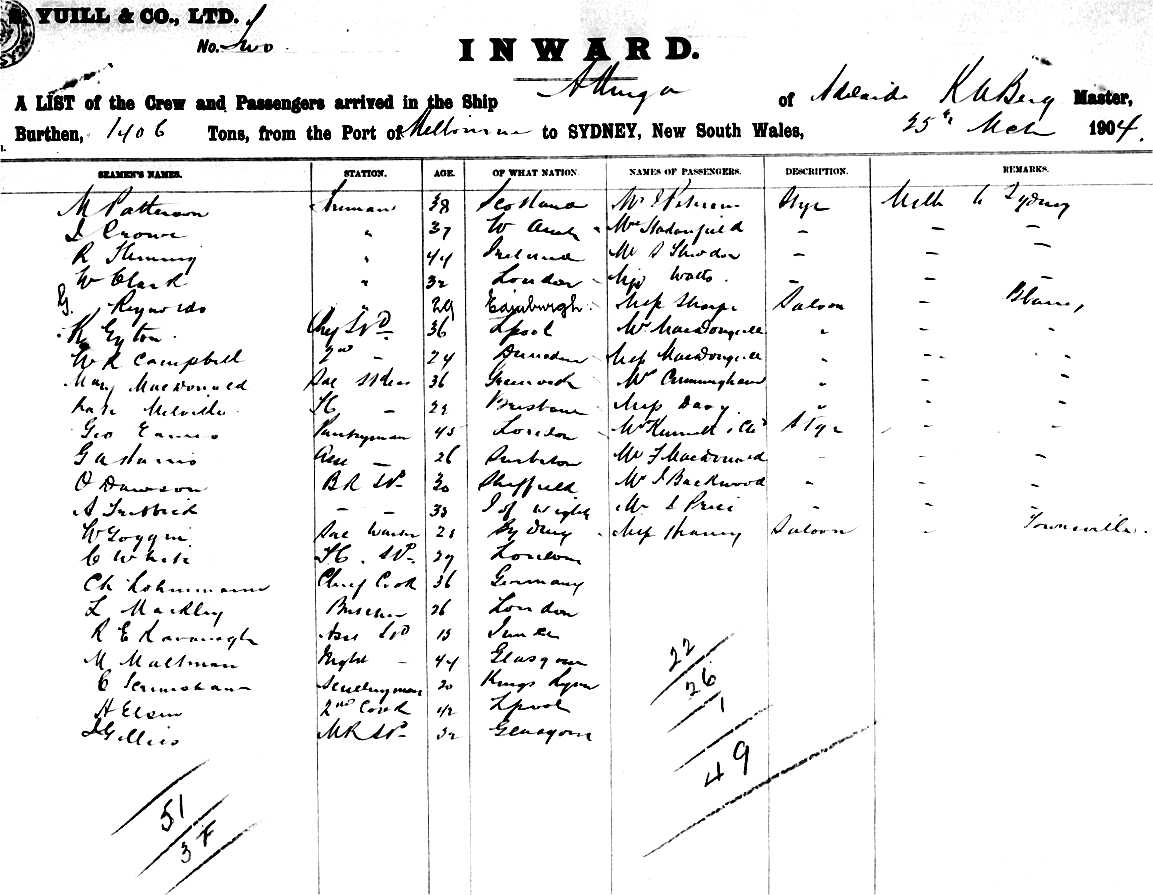 YUILL & CO., LTD.
No. Two
INWARD.
A LIST of the Crew and Passengers arrived in the Ship Allinga of Adelaide K A Berg Master,
Burthen, 1406 Tons, from the Port of Melbourne to SYDNEY, New South Wales, 25th Mch 1904.
SEAMEN'S NAMES. STATION. AGE. OF WHAT NATION. NAMES OF PASSENGERS. DESCRIPTION. REMARKS.
M Patterson Fireman 38 Scotland Mr Stge Melb to Sydney
J Crowe " 37 Mr - - -
R Fleming " 44 Ireland Mr S - - -
W Clark " 32 London Miss Watts - - -
G. Reynolds " 29 Edinburgh Miss Sharpe Saloon -
K Eyton Chf Std 36 Lpool Mr MacDougall " - -
W R Campbell 2nd - 24 Dunedin Miss MacDougall " - -
Mary MacDonald Sal Stdess 36 Greenock Mr Cunningham " - -
Kate Melville - 22 Brisbane Miss Davy " - -
Geo Eames Pantryman 45 London Mr Stge - -
G A Harris Asst - 26 Mr F MacDonald - - -
O Dawson B R Std 30 Sheffield Mr J Backwood " - -
A - - 33 I of Wight Mr S Price - - -
W Goggin Sal Waiter 21 Sydney Miss Saloon - Townsville
C White Std 29 London
Ch Lohnmann Chief Cook 36 Germany
L Mackley Butcher 26 London
R E Kavanagh Asst Std
M Maltman Night - 44 Glasgow
C Scrimshaw Sculleryman 20 Kings Lynn
H Elsin 2nd Cook 42 Lpool
J Gillies M R Std 32 Glasgow
22
26
1
49
51
3 F